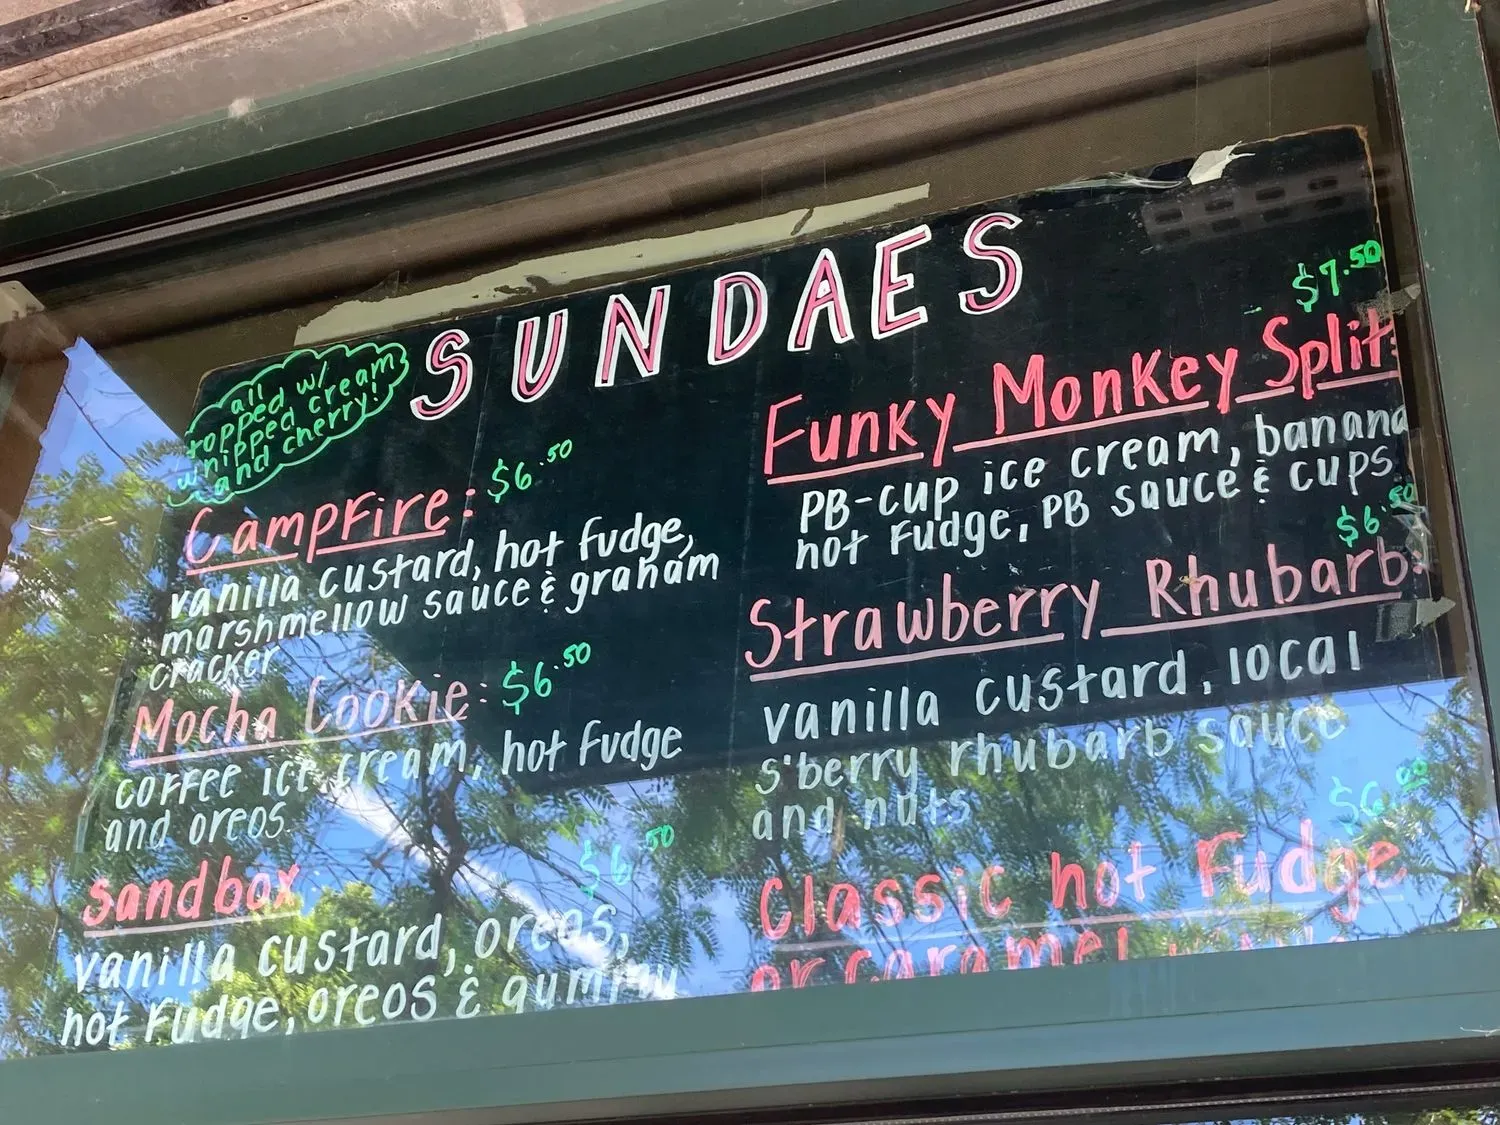 SUNDAES
all
topped w/
whipped cream
and cherry!
Campfire: $6.50
vanilla custard, hot fudge,
marshmellow sauce & graham
cracker
Mocha Cookie: $6.50
coffee ice cream, hot fudge
and oreos
$6.50
Sandbox
vanilla custard, oreos,
hot fudge, oreos & gummy
$7.50
Funky Monkey Split:
PB-cup ice cream, banana
hot fudge, PB sauce & cups
$6.50
Strawberry Rhubarb:
vanilla custard, local
s'berry rhubarb sauce
and nuts
Classic hot Fudge
or caramel